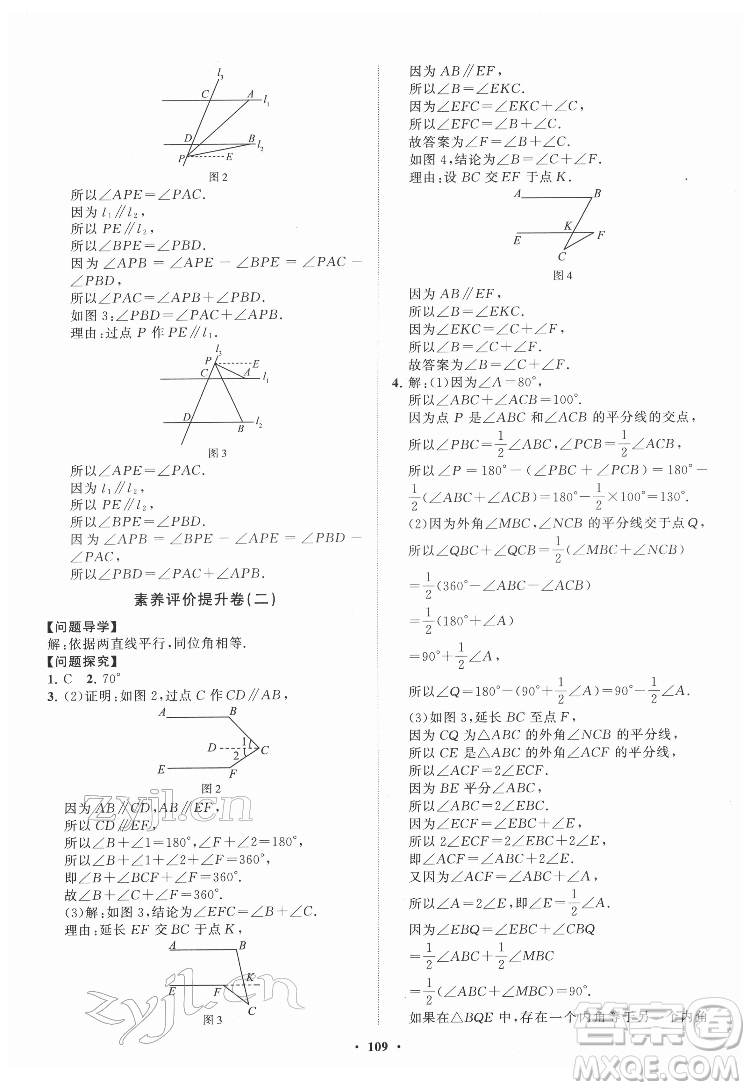 l₃
C A l₁
D B l₂
P E
图 2
所以∠APE=∠PAC.
因为 l₁∥l₂,
所以 PE∥l₂,
所以∠BPE=∠PBD.
因为∠APB=∠APE-∠BPE=∠PAC-
∠PBD,
所以∠PAC=∠APB+∠PBD.
如图 3;∠PBD=∠PAC+∠APB.
理由:过点 P 作 PE∥l₁.
l₃
P E
C A l₁
D B l₂
图 3
所以∠APE=∠PAC.
因为 l₁∥l₂,
所以 PE∥l₂,
所以∠BPE=∠PBD.
因为∠APB=∠BPE-∠APE=∠PBD-
∠PAC,
所以∠PBD=∠PAC+∠APB.
素养评价提升卷(二)
【问题导学】
解:依据两直线平行,同位角相等.
【问题探究】
1. C 2. 70°
3. (2)证明:如图 2,过点 C 作 CD∥AB,
A B
D 1 2 C
E F
图 2
因为 AB∥CD,AB∥EF,
所以 CD∥EF,
所以∠B+∠1=180°,∠F+∠2=180°,
所以∠B+∠1+∠2+∠F=360°,
即∠B+∠BCF+∠F=360°.
故∠B+∠C+∠F=360°.
(3)解:如图 3,结论为∠EFC=∠B+∠C.
理由:延长 EF 交 BC 于点 K,
A B
E F K
C
图 3
因为 AB∥EF,
所以∠B=∠EKC.
因为∠EFC=∠EKC+∠C,
所以∠EFC=∠B+∠C.
故答案为∠F=∠B+∠C.
如图 4,结论为∠B=∠F+∠C.
理由:设 BC 交 EF 于点 K.
A B
E K F
C
图 4
因为 AB∥EF,
所以∠B=∠EKC.
因为∠EKC=∠C+∠F,
所以∠B=∠C+∠F.
故答案为∠B=∠C+∠F.
4. 解:(1)因为∠A=80°,
所以∠ABC+∠ACB=100°.
因为点 P 是∠ABC 和∠ACB 的平分线的交点,
所以∠PBC=1/2∠ABC,∠PCB=1/2∠ACB,
所以∠P=180°-(∠PBC+∠PCB)=180°-
1/2(∠ABC+∠ACB)=180°-1/2×100°=130°.
(2)因为外角∠MBC,∠NCB 的平分线交于点 Q,
所以∠QBC+∠QCB=1/2(∠MBC+∠NCB)
=1/2(360°-∠ABC-∠ACB)
=1/2(180°+∠A)
=90°+1/2∠A,
所以∠Q=180°-(90°+1/2∠A)=90°-1/2∠A.
(3)如图 3,延长 BC 至点 F,
因为 CQ 为△ABC 的外角∠NCB 的平分线,
所以 CE 是△ABC 的外角∠ACF 的平分线,
所以∠ACF=2∠ECF.
因为 BE 平分∠ABC,
所以∠ABC=2∠EBC.
因为∠ECF=∠EBC+∠E,
所以 2∠ECF=2∠EBC+2∠E,
即∠ACF=∠ABC+2∠E.
又因为∠ACF=∠ABC+∠A,
所以∠A=2∠E,即∠E=1/2∠A.
因为∠EBQ=∠EBC+∠CBQ
=1/2∠ABC+1/2∠MBC
=1/2(∠ABC+∠MBC)=90°.
如果在△BQE 中,存在一个内角等于另一个内角
109
zyjl.cn
zyjl.cn
答案圈
MXQE.COM